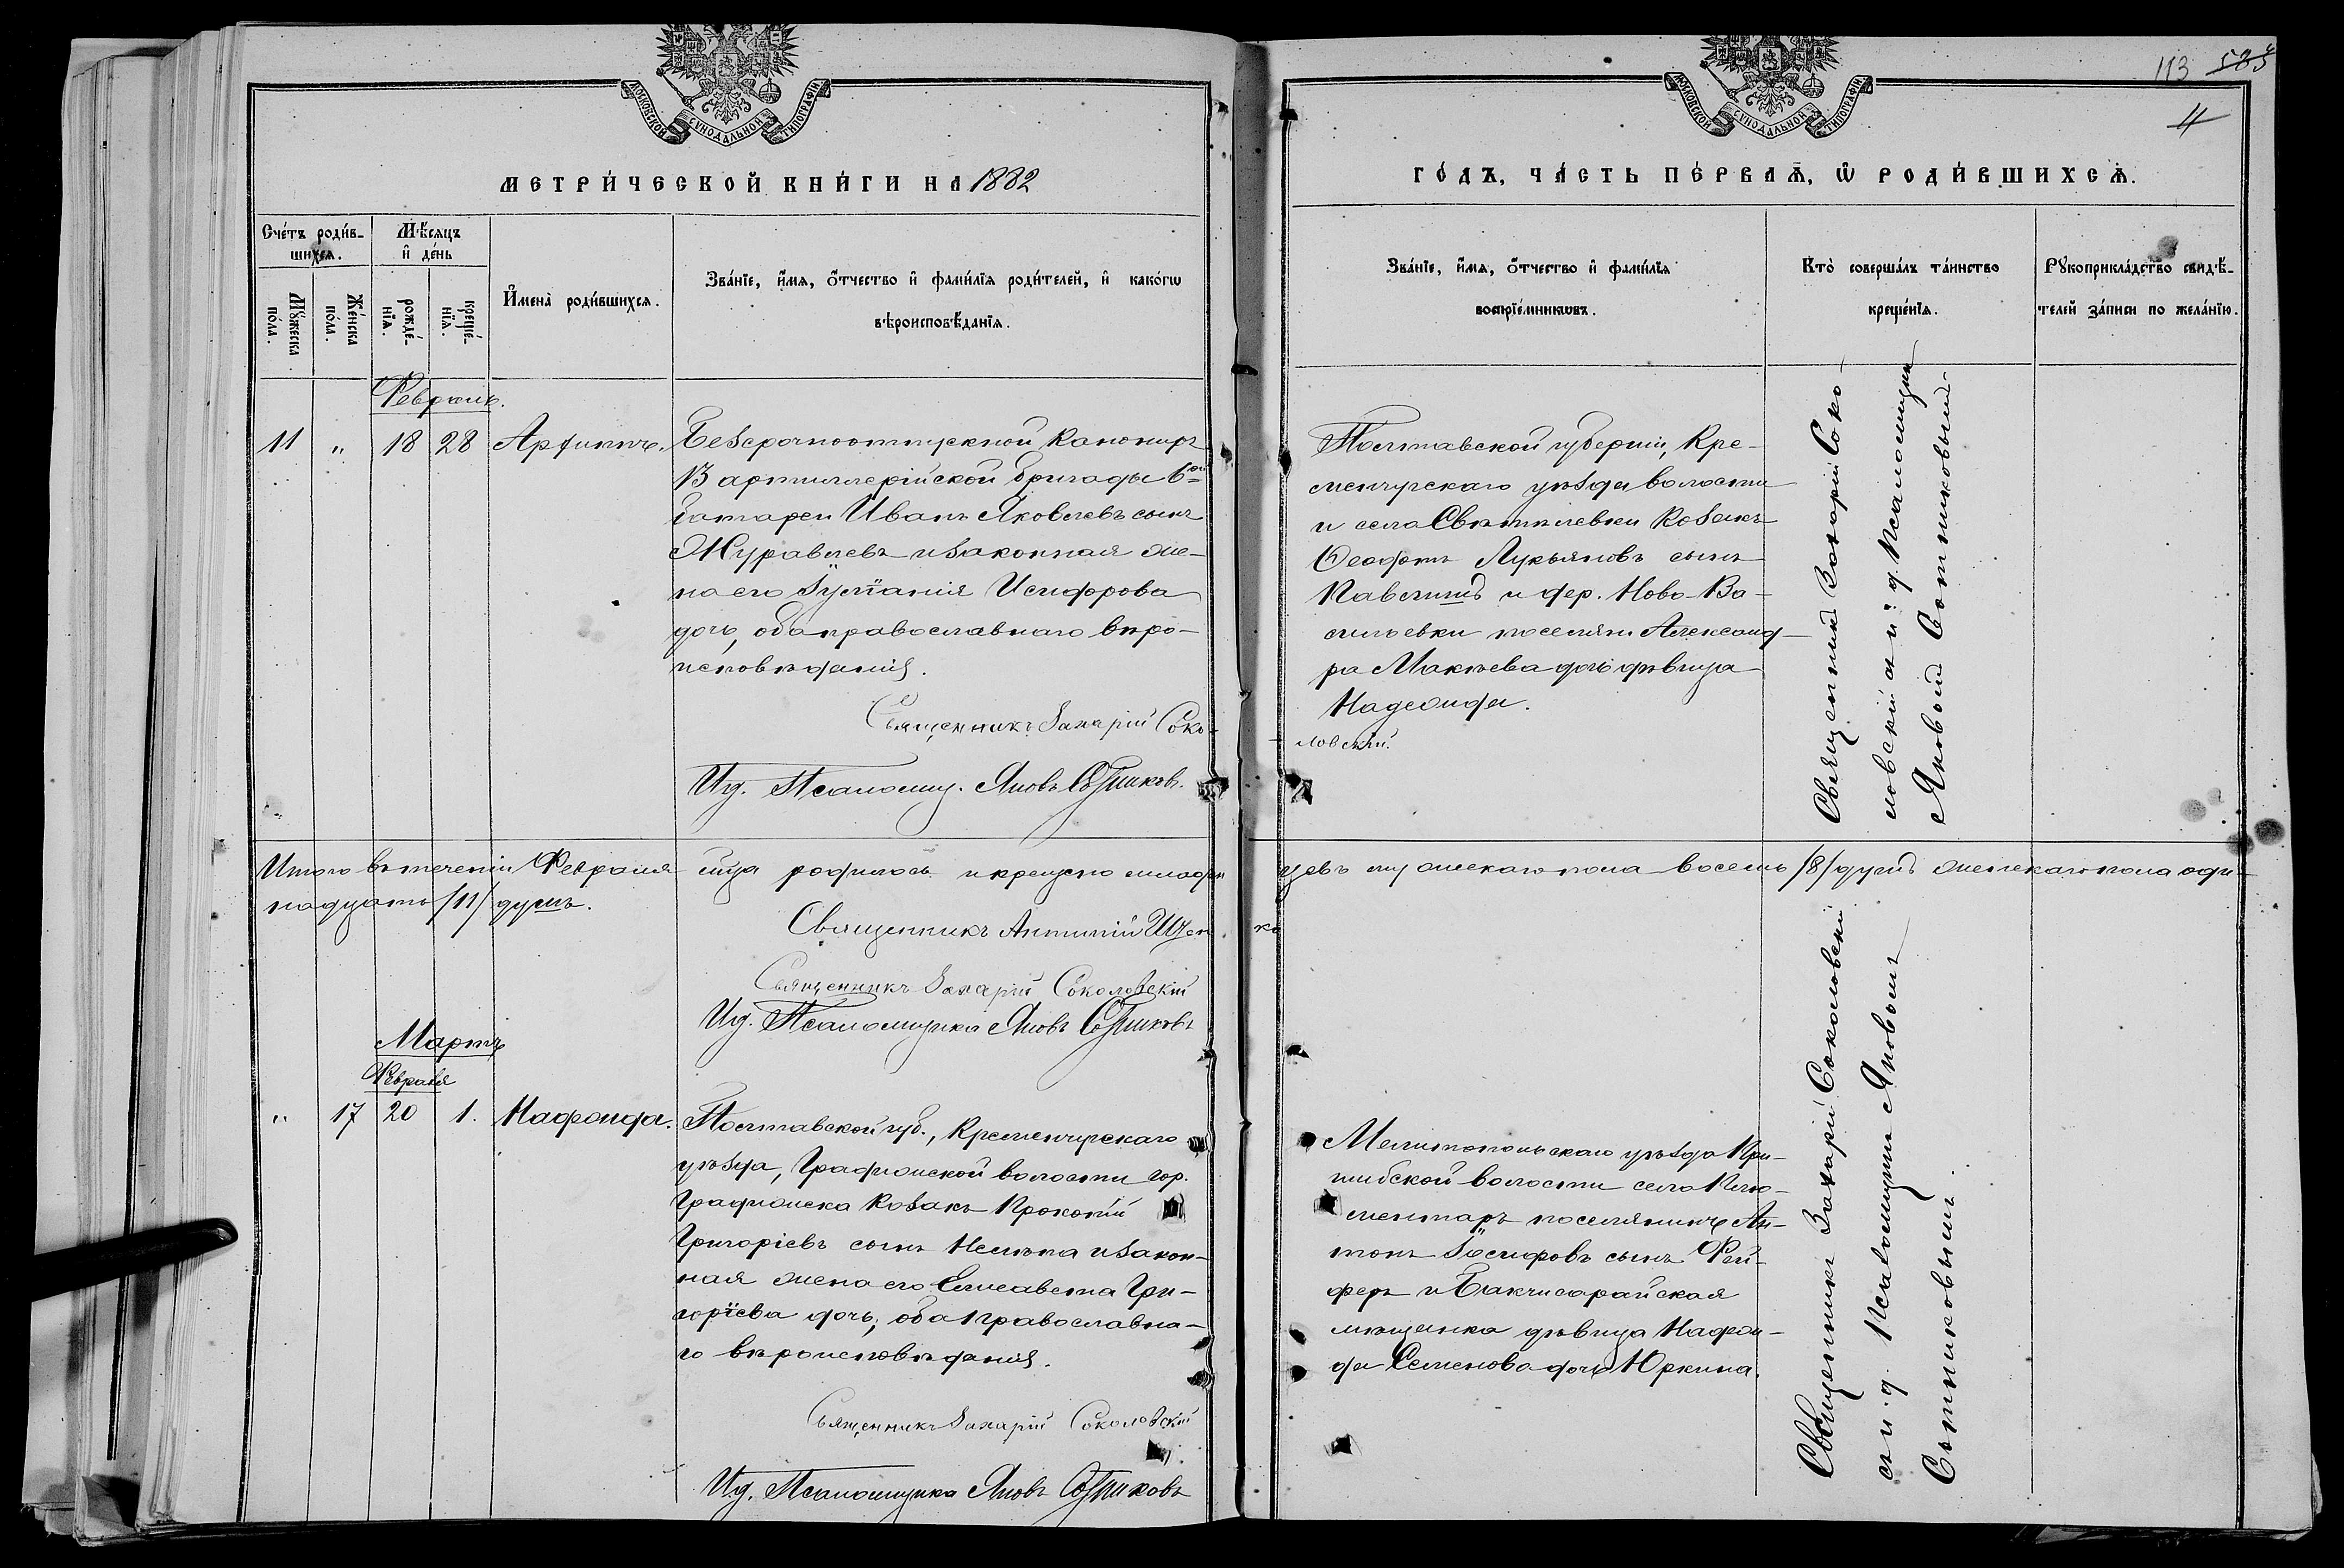 113 585
4
МОСКОВСКОЙ СѴНОДАЛЬНОЙ ТИПОГРАФІИ
МЕТРИ́ЧЕСКОЙ КНИ́ГИ НА 1882
Сче́тъ роди́в-
шихся.
Мѣ́сяцъ
и҆ де́нь
Мꙋ́жеска по́ла.
Же́нска по́ла.
рожде́-
нїѧ.
креще́-
нїѧ.
И҆мена̀ роди́вшихсѧ.
Зва́нїе, и҆́мѧ, ѻ҆́тчество и҆ фами́лїѧ роди́телей, и҆ како́гѡ
вѣроисповѣ́данїѧ.
Февраль.
11 " 18 28
Безсрочноотпускной Канониръ
13 артиллерійской бригады 6ой
батареи Иванъ Яковлевъ сынъ
Журавлевъ и законная же-
на его Іустинія Исидорова
дочь, оба православнаго вѣро-
исповѣданія.
Священникъ Захарій Соко-
Ид. Псаломщ. Яковъ Сотниковъ.
Итого въ теченіи Февраля мца родилось и крещено младен
надцать /11/ душъ.
Священникъ Антоній Щен
Священникъ Захарій Соколовскій
Ид. Псаломщика Яковъ Сотниковъ
Мартъ
Февраля
" 17 20 1. Надежда.
Полтавской губ., Кременчугскаго
уѣзда, Градижской волости гор.
Градижска Козакъ Прокопій
Григоріевъ сынъ и закон-
ная жена его Елисавета Гри-
горіева дочь, оба православна-
го вѣроисповѣданія.
Священникъ Захарій Соколовскій
Ид. Псаломщика Яковъ Сотниковъ
МОСКОВСКОЙ СѴНОДАЛЬНОЙ ТИПОГРАФІИ
ГО́ДЪ, ЧА́СТЬ ПЕ́РВАѦ, Ѡ҆ РОДИ́ВШИХСѦ.
Зва́нїе, и҆́мѧ, ѻ҆́тчество и҆ фами́лїѧ
воспрїе́мникѡвъ.
Кто̀ соверша́лъ та́инство
креще́нїѧ.
Рꙋкоприкла́дство свидѣ́-
телей за́писи по жела́нїю.
Полтавской губерніи, Кре-
менчугскаго уѣзда волости
и села Свѣтилевки Козакъ
Феодотъ Лукьяновъ сынъ
и дер. Ново-Ва-
сильевки поселян. Александ-
ра Макѣева дочь дѣвица
Надежда.
ловскій.
Священникъ Захарій Соко-
ловскій и и. д. Псаломщика
Яковъ Сотниковый
цевъ мужескаго пола восемь /8/ душъ женскаго пола оди-
ко
Мелитопольскаго уѣзда При-
шибской волости села Кост-
поселянинъ Ан-
тонъ Іосифовъ сынъ Фей-
феръ и Бакчисарайская
мѣщанка дѣвица Надеж-
да Семенова дочь Юркина.
Священникъ Захарій Соколовскій
съ и. д. Псаломщика Яковымъ
Сотниковымъ.